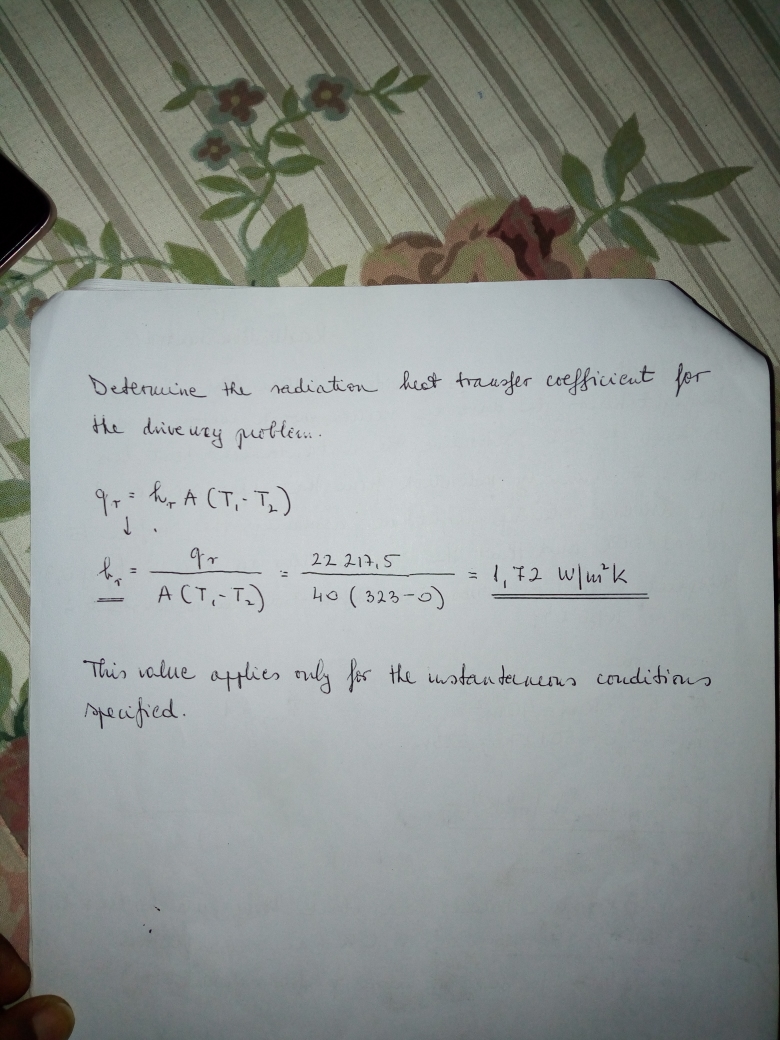 Determine the radiation heat transfer coefficient for
the driveway problem.
qr = hr A (T1 - T2)
↓
hr = qr / A (T1 - T2) = 22 217,5 / 40 (323-0) = 1,72 W/m²K
This value applies only for the instantaneous conditions
specified.